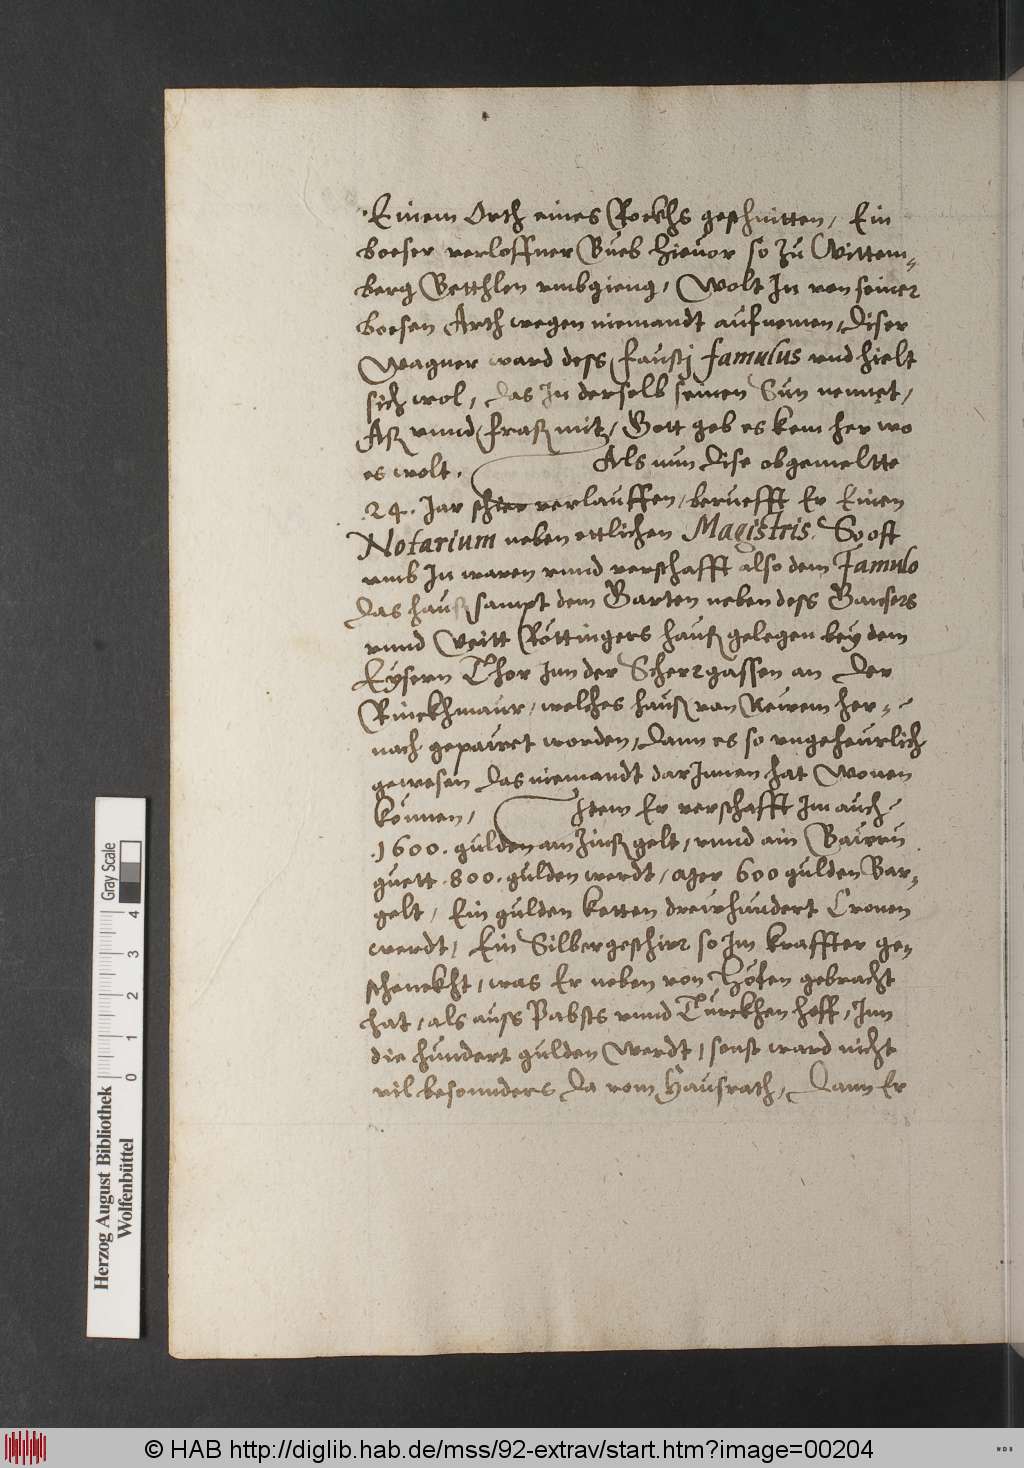 Einem Orth eines Rockhs geschnitten, Ein
boeser verloffner Bueb hievor so zu Wittem-
berg Betthlen umbgieng, Wolt In von seiner
boesen Arth wegen niemandt aufnemen, diser
Wagner ward dess fausti famulus und hielt
sich wol, das In derselb seinen Sun nennet,
Aß unnd fraß mit, Gott geb es kem her wo
es wolt. Als nun dise obgemeltte
.24. Jar verlauffen, berufft Er Einen
Notarium neben ettlichen Magistris. So oft
umb In waren unnd verschafft also dem Famulo
das hauß sampt dem Garten neben dess Gansers
unnd Veitt Röttingers hauß gelegen bey dem
Eysern Thor Inn der Scherrgassen an der
Rinckhmaur, welches hauß von Newem her-
nach gepauwet worden, dann es so ungeheurlich
gewesen das niemandt dar Innen hat Wonen
können, Item Er verschafft Im auch
.1600. gulden am Zinß gelt, unnd ain Baurn
guett .800. gulden werdt, 600 gulden Bar-
gelt, Ein gulden ketten dreihundert Cronen
werdt, Ein Silbergeschirr so Im kraffter ge-
schenckht, was Er neben von Höfen gebracht
hat, als auss Pabsts unnd Turckhen hoff, Inn
die hundert gulden Werdt, sonst ward nicht
vil besonnders da vom Hausrath, dann Er
Herzog August Bibliothek
Wolfenbüttel
0 1 2 3 4
Gray Scale
© HAB http://diglib.hab.de/mss/92-extrav/start.htm?image=00204